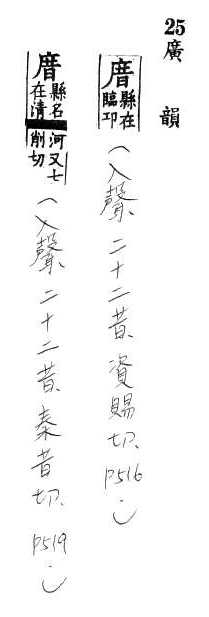 25 廣韻
庴 縣在臨卭 (入聲、二十二昔、資賜切、P516.)
庴 縣名在清河又七削切 (入聲、二十二昔、秦昔切、P519.)